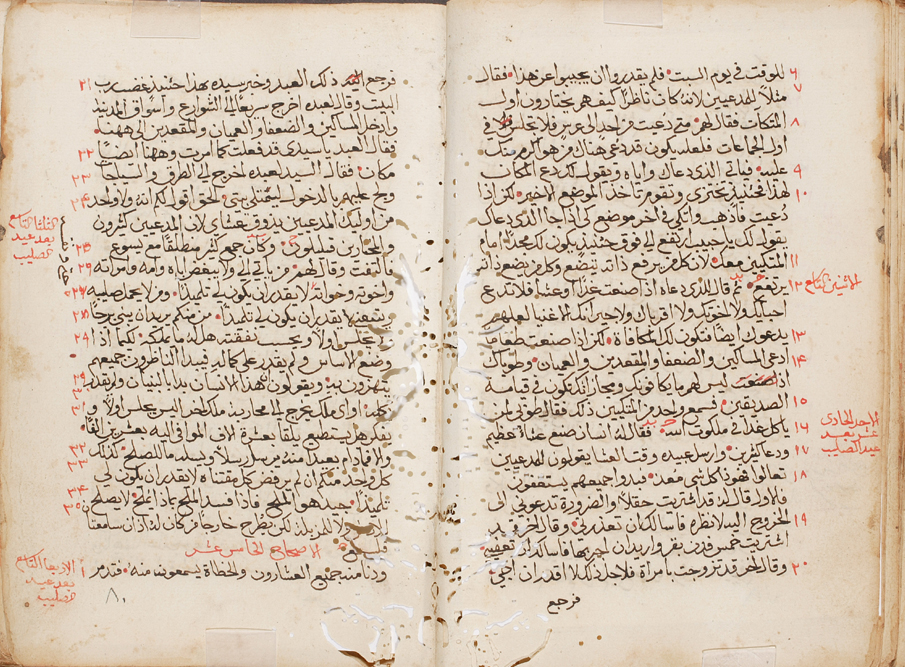 للوقت في يوم السبت فلم يقدروا ان يجيبوا عن هذا فقال ٦
مثلاً للمدعيين لانه كان ناظراً كيف هم يختارون اول ٧
المتكات فقال لهم متى دعيت من احد الى عرس فلا تجلس في ٨
اول الجماعات فلعله يكون قد دعي هناك من هو اكرم منك
عليه فياتي الذي دعاك واياه ويقول لك دع المكان ٩
لهذا فحينيذ تخترى وتقوم تاخذ الموضع الاخير لكن اذا ١٠
دعيت فاذهب واتكى في اخر موضع لكى اذا جا الذي دعاك
يقول لك يا حبيب ارتفع الى فوق حينيذ يكون لك مجداً امام
المتكيين معك لان كل من يرفع ذاته يتضع وكل من يضع ذاته ١١
يرتفع ثم قال للذي دعاه اذا صنعت غداً او عشا فلا تدع ١٢
احباك ولا اخوتك ولا اقرباك ولا جيرانك الاغنيا لعلهم
يدعوك ايضاً فتكون لك المكافاة لكن اذا صنعت طعاماً ١٣
ادعي المساكين والضعفا والمقعدين والعميان وطوباك ١٤
اذ ليس لهم ما يكافونك ومجازاتك تكون في قيامة
الصديقين فسمع واحد من المتكيين ذلك فقال طوبى لمن ١٥
ياكل غداً في ملكوت الله فقال له انسان صنع عشاءً عظيم ١٦
ودعا كثيرين وارسل عبيده وقت العشا يقولون للمدعيين ١٧
تعالوا فهوذا كل شي معد فبدوا جميعهم يستعفون ١٨
فالاول قال له قد اشتريت حقلاً والضرورة تدعوني الى
الخروج اليه لانظره فاسالك ان تعذرني وقال اخر قد ١٩
اشتريت خمس فدن بقر واريد ان اجربها فاسالك ان تعفيه
وقال اخر قد تزوجت بامرأة فلاجل ذلك لا اقدر ان اجي ٢٠
فرجع
الاثنين التاسع
الاحد الحادى
عشر بعد
عيد الصليب
فرجع ذلك العبد وخبر سيده بهذا حينيذ غضب رب ٢١
البيت وقال لعبده اخرج سريعاً الى الشوارع واسواق المدينة
وادخل المساكين والضعفا والعميان والمقعدين الى ههنا
فقال العبد يا سيدي قد فعلت كما امرت وههنا ايضاً ٢٢
مكان فقال السيد لعبده اخرج الى الطرق والسياجات ٢٣
ولج عليهم بالدخول ليمتلى بيتي لحق اقول لكم انه لا واحد ٢٤
من اوليك المدعيين يذوق عشاي لان المدعيين كثيرون
والمختارين قليلون وكان جمع كثير منطلقاً مع يسوع ٢٥
فالتفت وقال لهم من ياتي الي ولا يبغض اباه وامه وامراته ٢٦
واخوته وخواته لا يقدر ان يكون لي تلميذاً ومن لا يحمل صليبه ٢٧
ويتبعني لا يقدر ان يكون لي تلميذاً من منكم يريد ان يبني برجاً ٢٨
لا يجلس اولاً ويحسب نفقته هل له ما يكمله لكيما اذا ٢٩
وضع الاساس ولم يقدر على كماله فيبدا الناظرون جميعهم
يتهزون به ويقولون هذا الانسان بدا بالبنيان ولم يقدر ٣٠
يكمله او اي ملك يخرج الى محاربة ملك اخر اليس يجلس اولاً و ٣١
يفكر هل يستطيع يلقا بعشرة الاف الموافي اليه بعشرين الفاً
والا فما دام بعيداً منه يرسل رسلاً ويسله ما للصلح كذلك ٣٢
كل واحد منكم ان لم يرفض كل مقتناه لا يقدر ان يكون لي ٣٣
تلميذاً جيد هو الملح فاذا فسد الملح بماذا يملح لا يصلح ٣٤
لا للمزبلة لكن يطرح خارجاً من كان له اذان سامعتان ٣٥
فليسمع
الاصحاح الخامس عشر
ودنا منه جميع العشارون والخطاة يسمعون منه فتذمر ١
٨٠
الثلثا التاسع
بعد عيد
الصليب
الاربعا التاسع
بعد عيد
الصليب